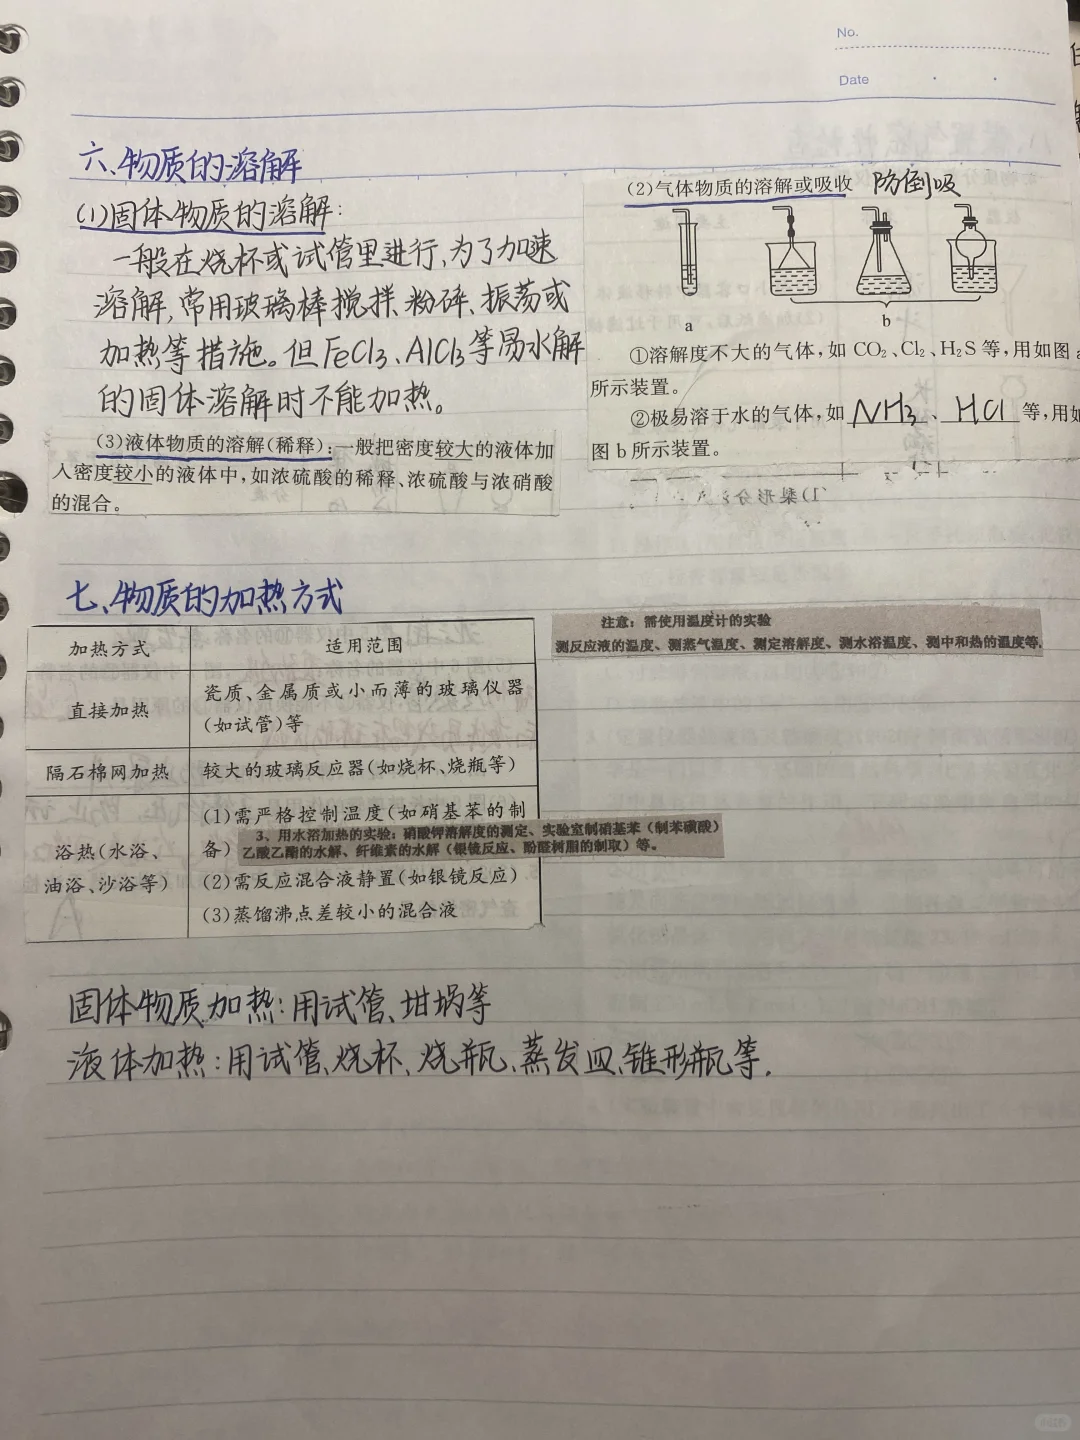 No.
Date
六、物质的溶解
(1)固体物质的溶解:
一般在烧杯或试管里进行,为了加速
溶解,常用玻璃棒搅拌、粉碎、振荡或
加热等措施。但FeCl3、AlCl3等易水解
的固体溶解时不能加热。
(3)液体物质的溶解(稀释):一般把密度较大的液体加
入密度较小的液体中,如浓硫酸的稀释、浓硫酸与浓硝酸
的混合。
(2)气体物质的溶解或吸收 防倒吸
a
b
①溶解度不大的气体,如 CO₂、Cl₂、H₂S 等,用如图 a
所示装置。
②极易溶于水的气体,如 NH3 、 HCl 等,用如
图 b 所示装置。
七、物质的加热方式
加热方式 适用范围
直接加热 瓷质、金属质或小而薄的玻璃仪器
(如试管)等
隔石棉网加热 较大的玻璃反应器(如烧杯、烧瓶等)
浴热(水浴、
油浴、沙浴等)
(1)需严格控制温度(如硝基苯的制
备)
(2)需反应混合液静置(如银镜反应)
(3)蒸馏沸点差较小的混合液
3、用水浴加热的实验:硝酸钾溶解度的测定、实验室制硝基苯(制苯磺酸)
乙酸乙酯的水解、纤维素的水解(银镜反应、酚醛树脂的制取)等。
注意:需使用温度计的实验
测反应液的温度、测蒸气温度、测定溶解度、测水浴温度、测中和热的温度等.
固体物质加热:用试管、坩埚等
液体加热:用试管、烧杯、烧瓶、蒸发皿、锥形瓶等.